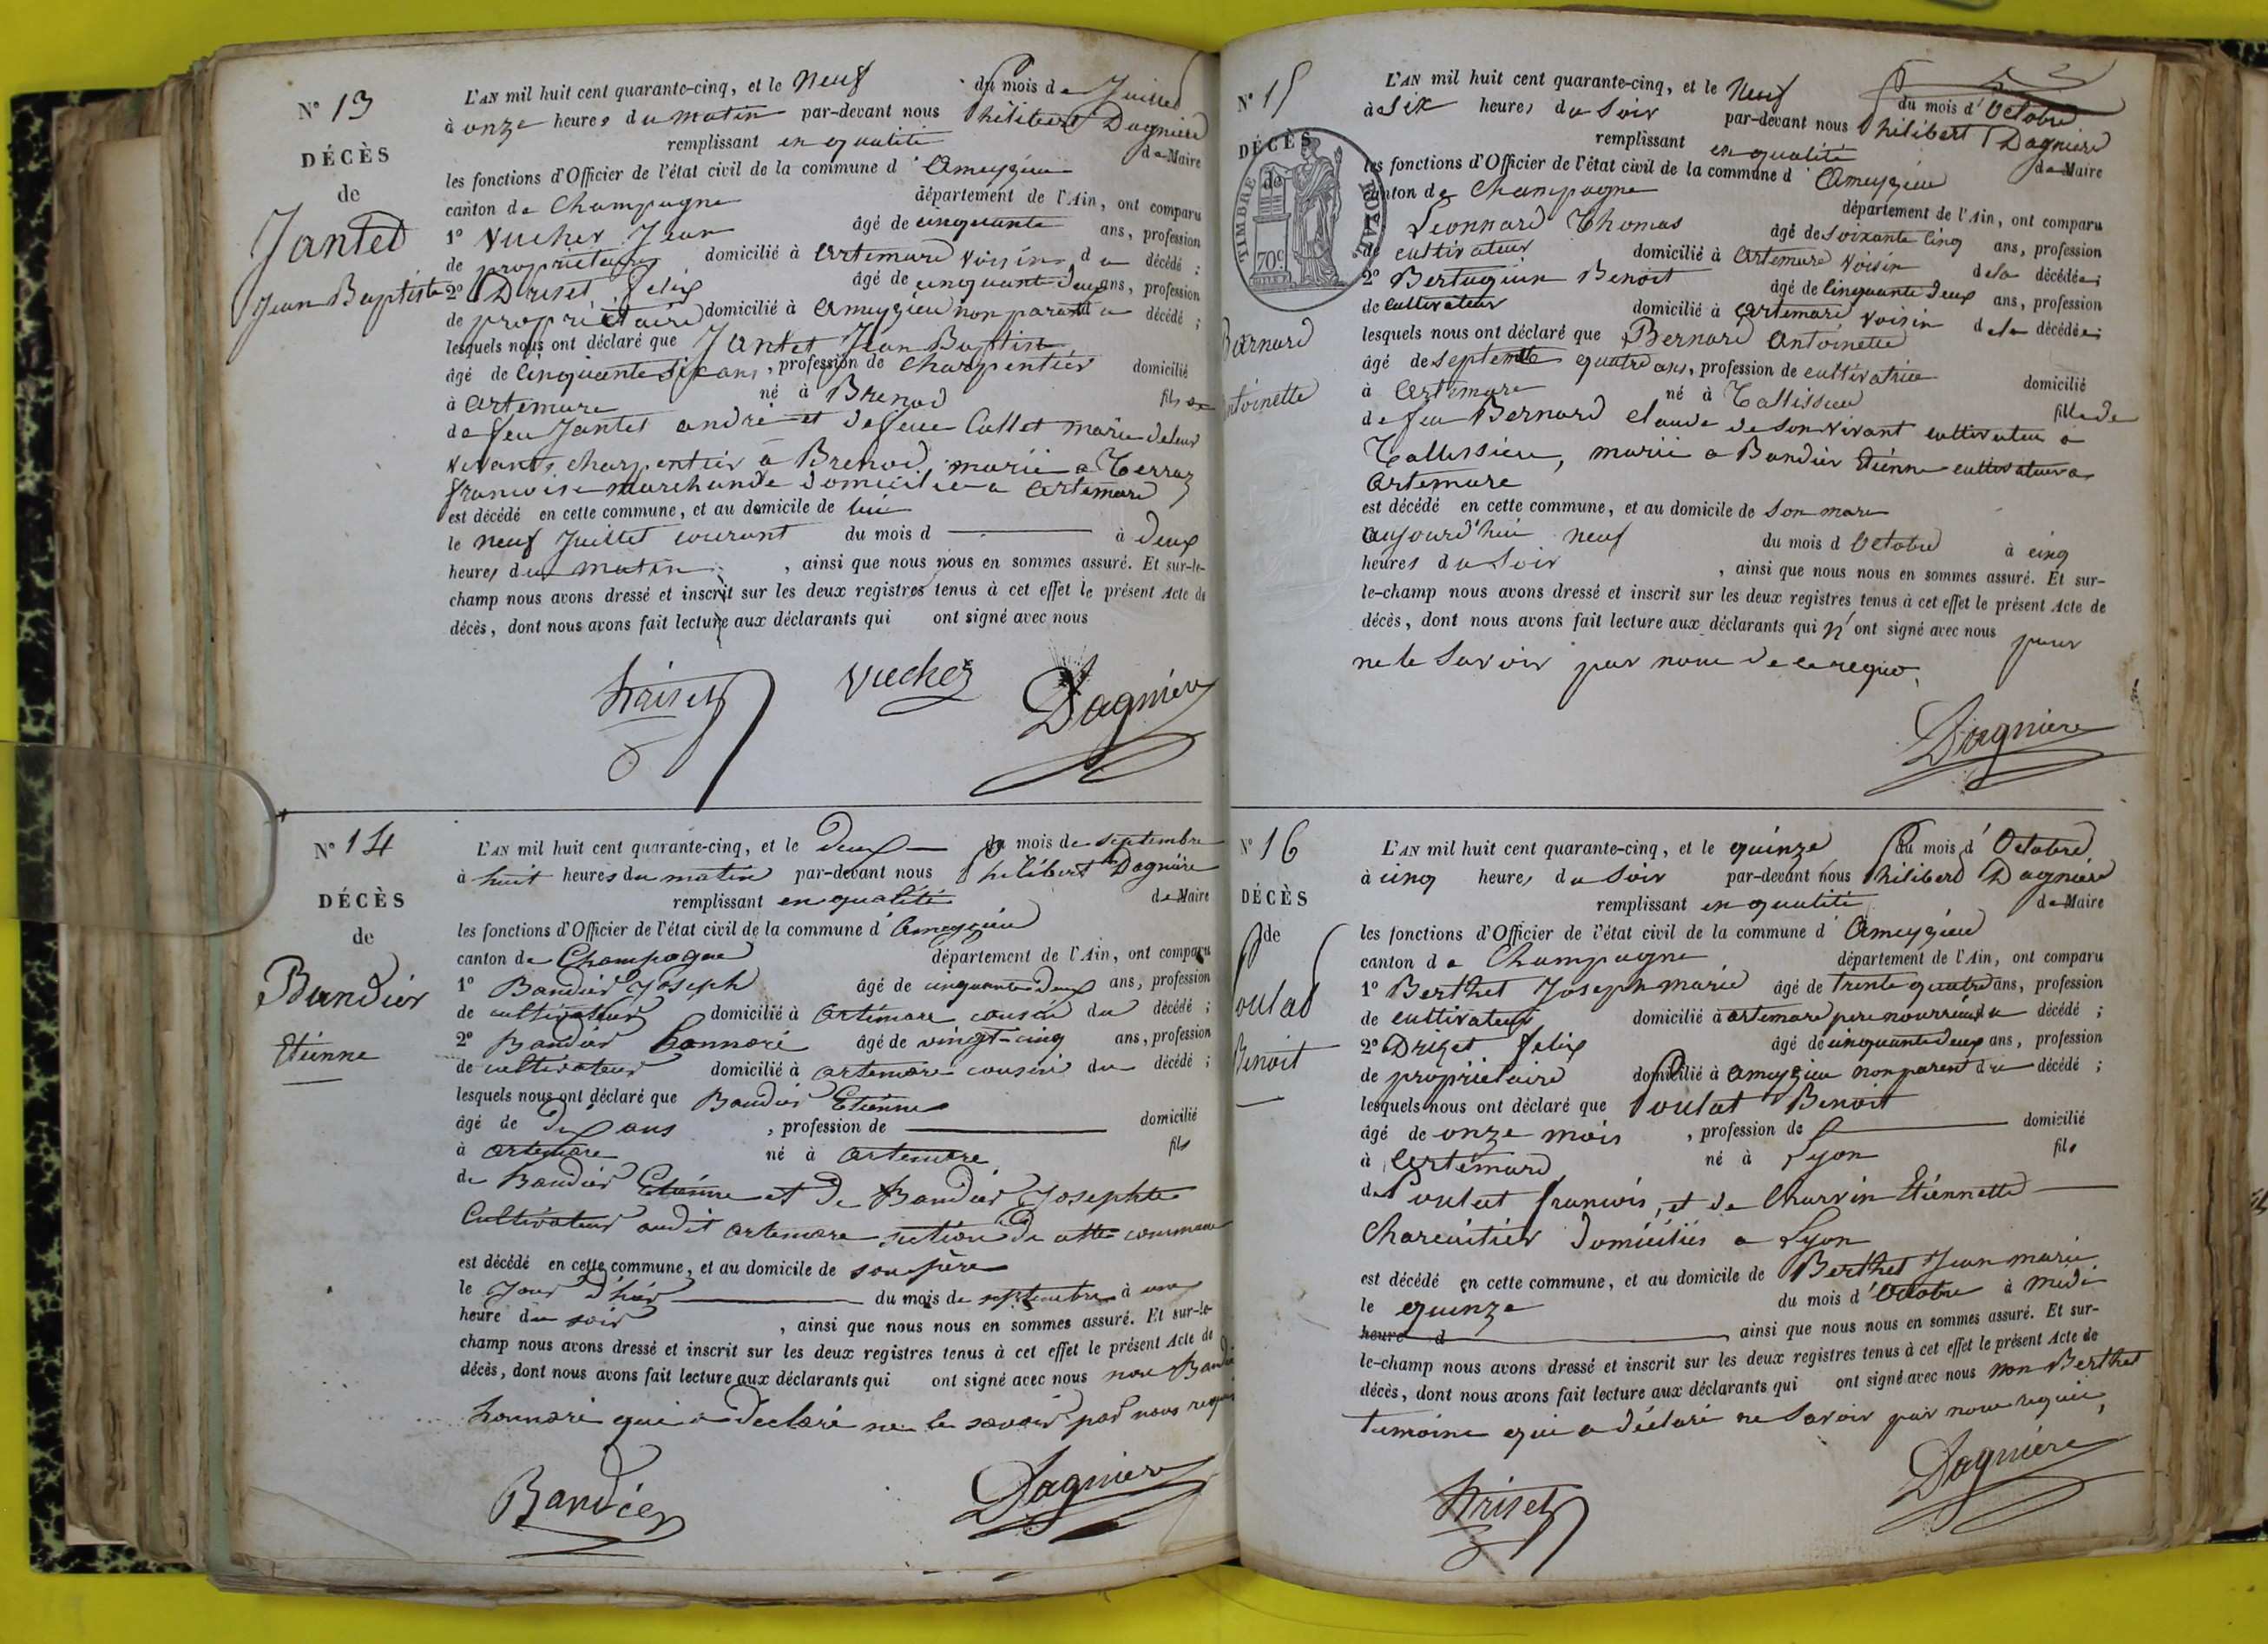 N° 13
DÉCÈS
de
Jantet
Jean Baptiste
L'AN mil huit cent quarante-cinq, et le neuf du mois de Juillet
à onze heures du matin par-devant nous Philibert Dagnière
remplissant en qualité de Maire
les fonctions d'Officier de l'état civil de la commune d'Ameyzieu
canton de Champagne département de l'Ain, ont comparu
1° Vucher Jean âgé de cinquante ans, profession
de propriétaire domicilié à Artemare voisin du décédé ;
2° Driset Felix âgé de cinquante deux ans, profession
de propriétaire domicilié à Ameyzieu non parent du décédé ;
lesquels nous ont déclaré que Jantet Jean Baptiste
âgé de cinquante six ans, profession de charpentier domicilié
à Artemare né à Brenod fils
de feu Jantet andré et de feue Collet marie de leur
vivants charpentier à Brenod, marié a Terraz
francoise marchande domiciliée a Artemare
est décédé en cette commune, et au domicile de lui
le neuf Juillet courant du mois d à deux
heures du matin, ainsi que nous nous en sommes assuré. Et sur-le-
champ nous avons dressé et inscrit sur les deux registres tenus à cet effet le présent Acte de
décès, dont nous avons fait lecture aux déclarants qui ont signé avec nous
Driset Vucher Dagnière
N° 14
DÉCÈS
de
Bandier
Etienne
L'AN mil huit cent quarante-cinq, et le deux du mois de septembre
à huit heures du matin par-devant nous Philibert Dagnière
remplissant en qualité de Maire
les fonctions d'Officier de l'état civil de la commune d'Ameyzieu
canton de Champagne département de l'Ain, ont comparu
1° Bandier Joseph âgé de cinquante deux ans, profession
de cultivateur domicilié à Artemare cousin du décédé ;
2° Bandier honnoré âgé de vingt-cinq ans, profession
de cultivateur domicilié à artemare cousin du décédé ;
lesquels nous ont déclaré que Bandier Etienne
âgé de dix ans, profession de domicilié
à artemare né à artemare fils
de Bandier Etienne et de Bandier Josephte
Cultivateur audit artemare section de cette commune
est décédé en cette commune, et au domicile de son père
le Jour d'hier du mois de septembre à une
heure du soir, ainsi que nous nous en sommes assuré. Et sur-le-
champ nous avons dressé et inscrit sur les deux registres tenus à cet effet le présent Acte de
décès, dont nous avons fait lecture aux déclarants qui ont signé avec nous non Bandier
honnoré qui a declaré ne le savoir par nous requis
Bandier Dagnière
N° 15
DÉCÈS
de
TIMBRE ROYAL
70c
Bernard
Antoinette
L'AN mil huit cent quarante-cinq, et le neuf du mois d'Octobre
à six heures du soir par-devant nous Philibert Dagnière
remplissant en qualité de Maire
les fonctions d'Officier de l'état civil de la commune d'Ameyzieu
canton de Champagne département de l'Ain, ont comparu
Leonnard Thomas âgé de soixante cinq ans, profession
de cultivateur domicilié à Artemare voisin de la décédée ;
2° Bertuquin Benoit âgé de cinquante deux ans, profession
de cultivateur domicilié à Artemare voisin de la décédée ;
lesquels nous ont déclaré que Bernard Antoinette
âgé de septente quatre ans, profession de cultivatrice domicilié
à Artemare né à Tallissieu fille de
de feu Bernard claude de son vivant cultivateur a
Tallissieu, marié a Bandier Etienne cultivateur a
Artemare
est décédé en cette commune, et au domicile de son mari
aujourd'hui neuf du mois d Octobre à cinq
heures du soir, ainsi que nous nous en sommes assuré. Et sur-
le-champ nous avons dressé et inscrit sur les deux registres tenus à cet effet le présent Acte de
décès, dont nous avons fait lecture aux déclarants qui n'ont signé avec nous pour
ne le savoir par nous de ce requis
Dagnière
N° 16
DÉCÈS
de
Poulat
Benoit
L'AN mil huit cent quarante-cinq, et le quinze du mois d'Octobre
à cinq heures du soir par-devant nous Philibert Dagnière
remplissant en qualité de Maire
les fonctions d'Officier de l'état civil de la commune d'Ameyzieu
canton de Champagne département de l'Ain, ont comparu
1° Berthet Joseph marie âgé de trente quatre ans, profession
de cultivateur domicilié à artemare pere nourricier du décédé ;
2° Driset Felix âgé de cinquante deux ans, profession
de propriétaire domicilié à Ameyzieu non parent du décédé ;
lesquels nous ont déclaré que Poulat Benoit
âgé de onze mois, profession de domicilié
à Artemare né à Lyon fils
de Poulat francois, et de Charvin Etiennette
Charcutier domiciliés a Lyon
est décédé en cette commune, et au domicile de Berthet Jean marie
le quinze du mois d'Octobre à midi
heure d ainsi que nous nous en sommes assuré. Et sur-
le-champ nous avons dressé et inscrit sur les deux registres tenus à cet effet le présent Acte de
décès, dont nous avons fait lecture aux déclarants qui ont signé avec nous non Berthet
temoins qui a déclaré ne savoir par nous requis,
Driset Dagnière